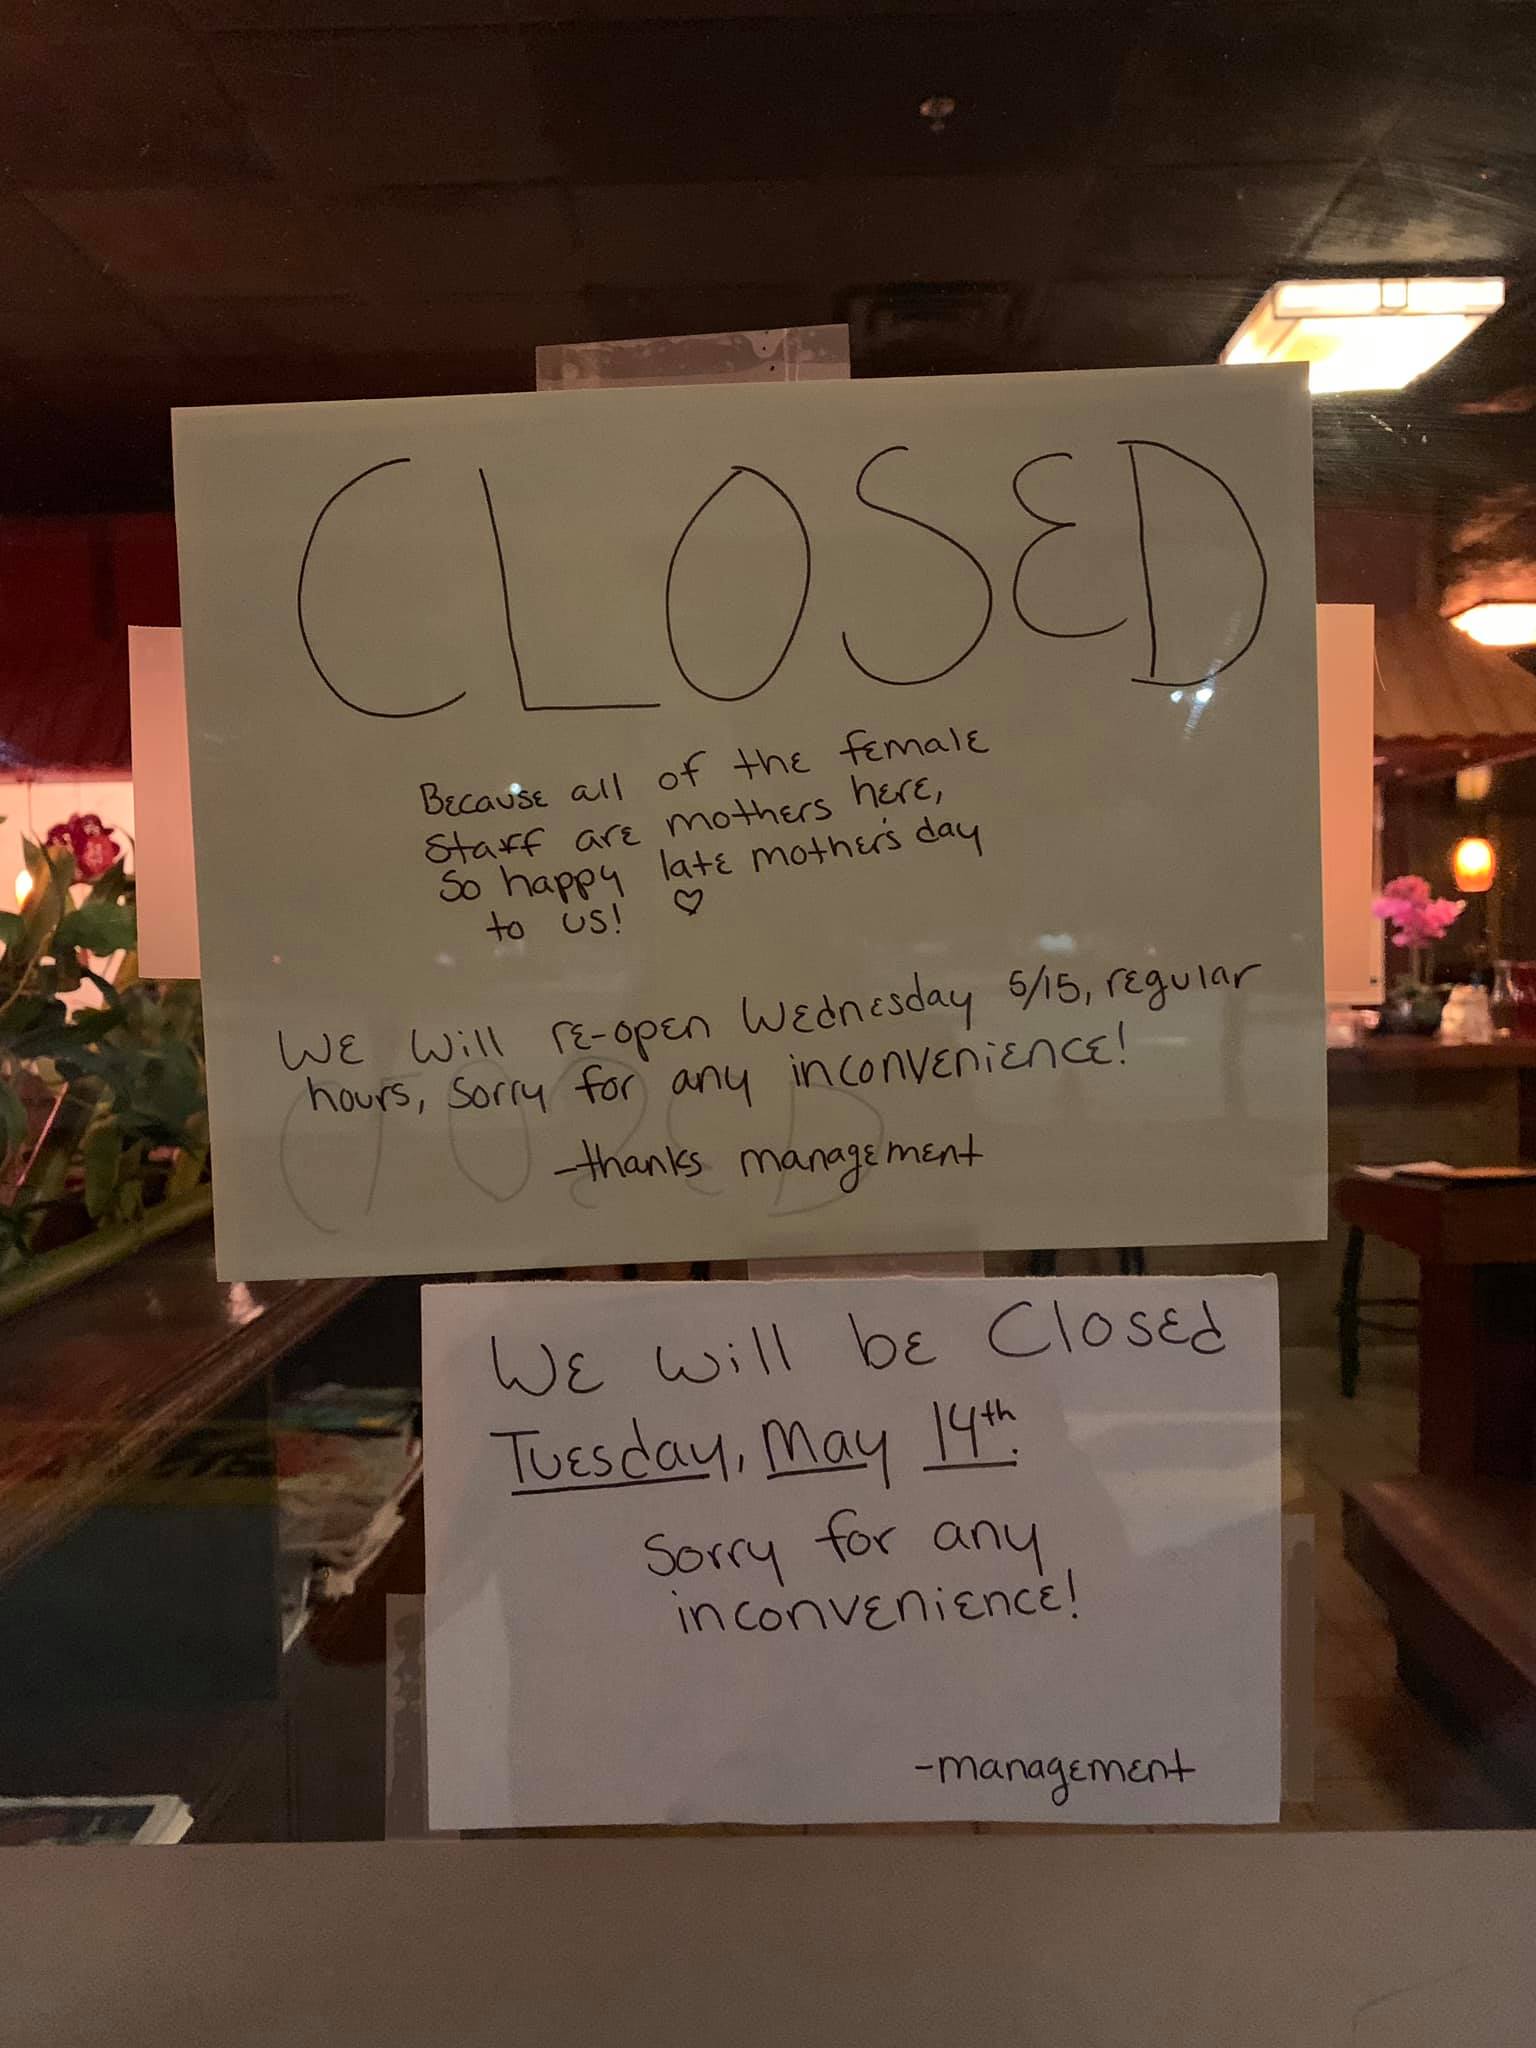 CLOSED
Because all of the female
staff are mothers here,
So happy late mother's day
to us! ♡
We will re-open Wednesday 5/15, regular
hours, sorry for any inconvenience!
-thanks management
We will be Closed
Tuesday, May 14th.
Sorry for any
inconvenience!
-management